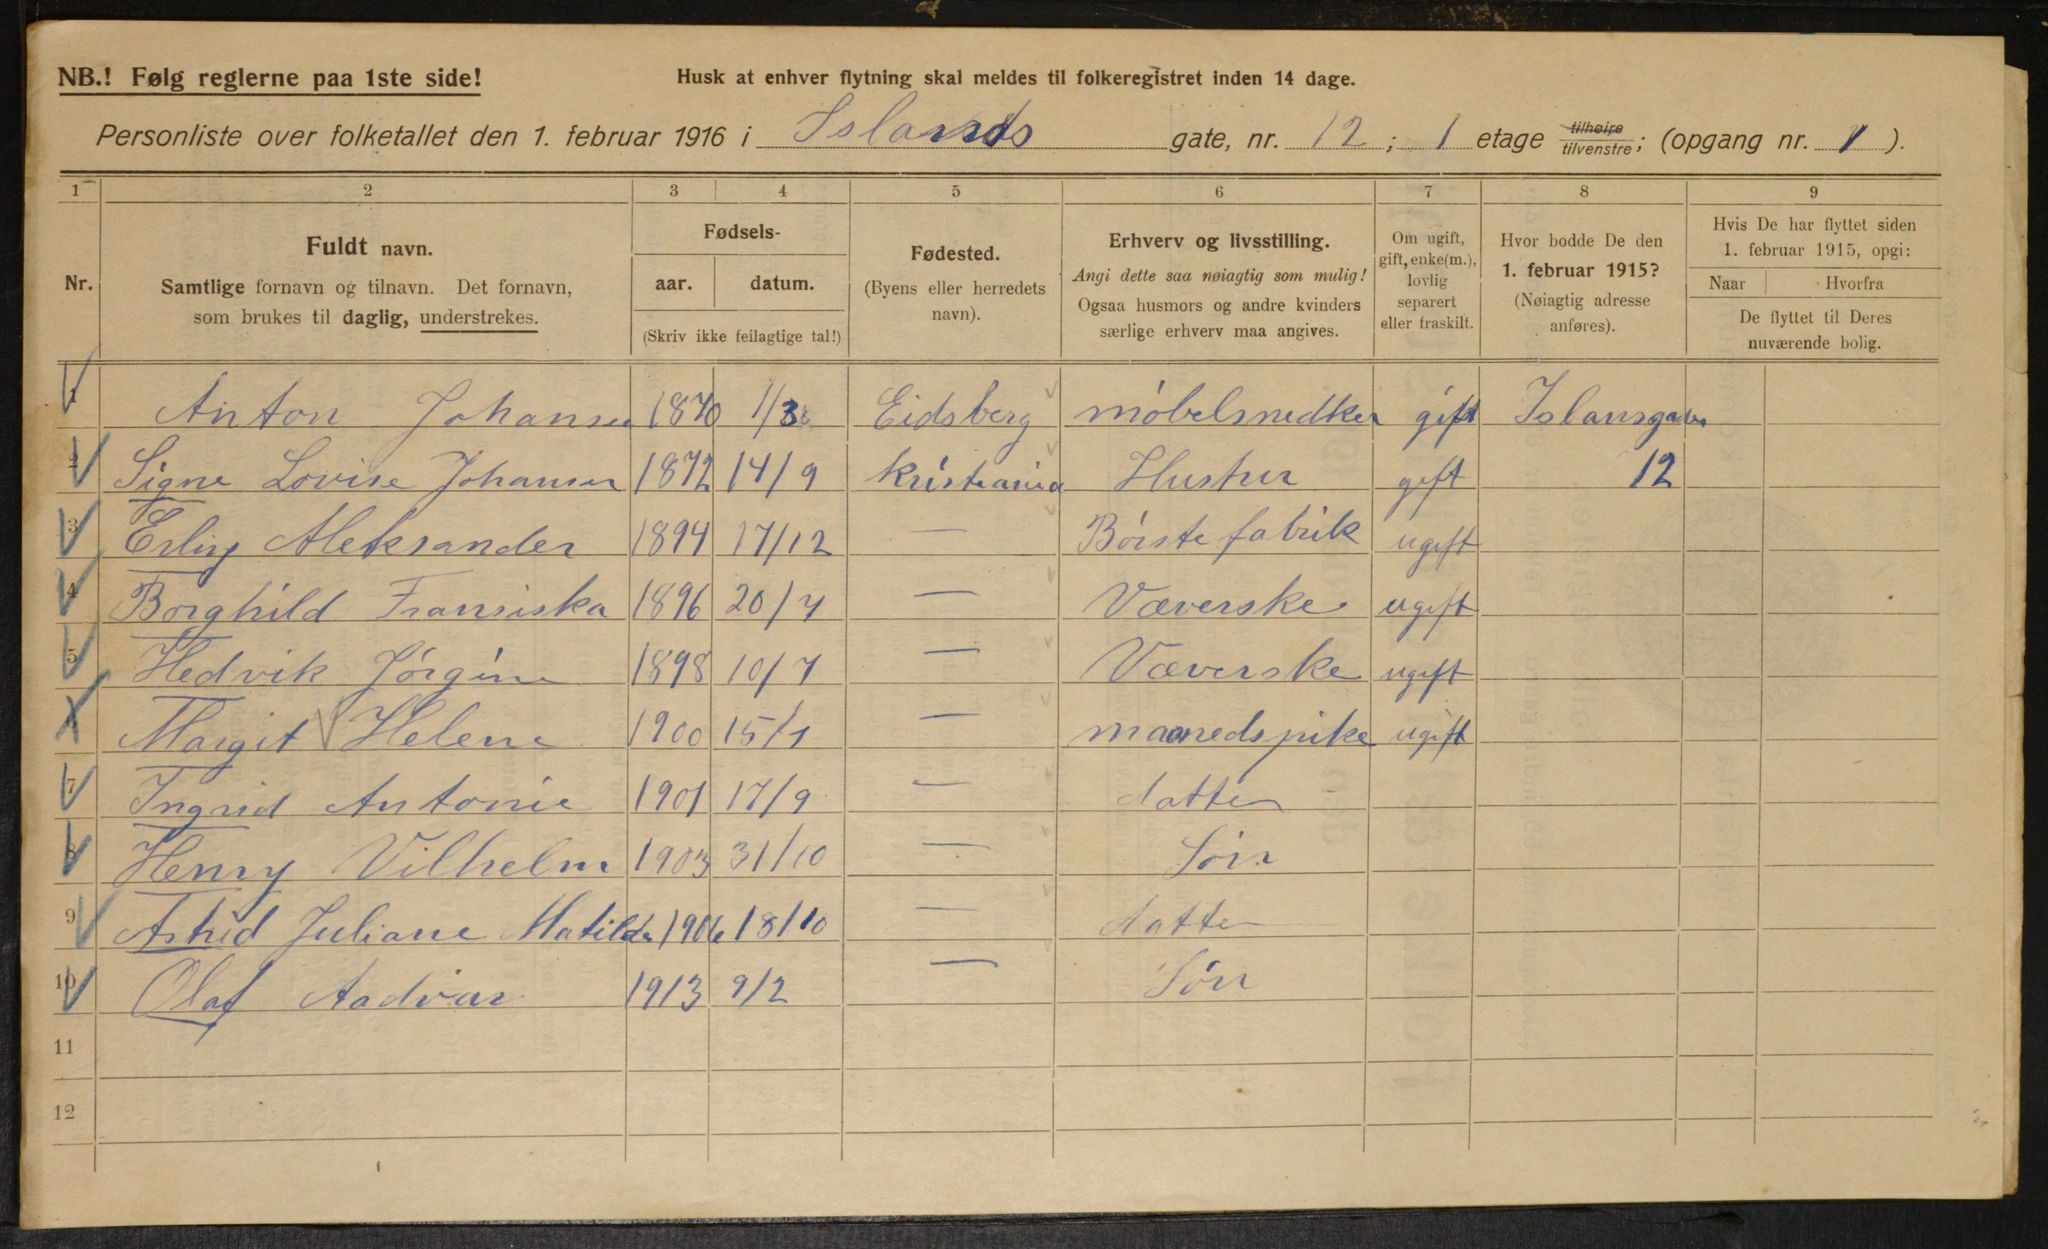 NB.! Følg reglerne paa 1ste side!
Husk at enhver flytning skal meldes til folkeregistret inden 14 dage.
Personliste over folketallet den 1. februar 1916 i Islands gate, nr. 12; 1 etage tilhøire tilvenstre; (opgang nr. 1).
1 2 3 4 5 6 7 8 9
Nr.
Fuldt navn.
Samtlige fornavn og tilnavn. Det fornavn,
som brukes til daglig, understrekes.
Fødsels-
aar. datum.
(Skriv ikke feilagtige tal!)
Fødested.
(Byens eller herredets
navn).
Erhverv og livsstilling.
Angi dette saa nøiagtig som mulig!
Ogsaa husmors og andre kvinders
særlige erhverv maa angives.
Om ugift,
gift, enke(m.),
lovlig
separert
eller fraskilt.
Hvor bodde De den
1. februar 1915?
(Nøiagtig adresse
anføres).
Hvis De har flyttet siden
1. februar 1915, opgi:
Naar Hvorfra
De flyttet til Deres
nuværende bolig.
1 Anton Johansen 1870 1/3 Eidsberg møbelsnedker gift Islansgaten
2 Signe Lovise Johansen 1872 14/9 Kristiania Hustru gift 12
3 Erling Aleksander 1894 17/12 — Børstefabrik ugift
4 Borghild Fransiska 1896 20/7 — Væverske ugift
5 Hedvik Jørgine 1898 10/7 — Væverske ugift
Margit Helene 1900 15/1 — maanedspike ugift
7 Ingrid Antonie 1901 17/9 — datter
8 Henry Vilhelm 1903 31/10 — Søn
9 Astrid Juliane Matilde 1906 18/10 — datter
10 Olaf Aadvar 1913 9/2 — Søn
11
12